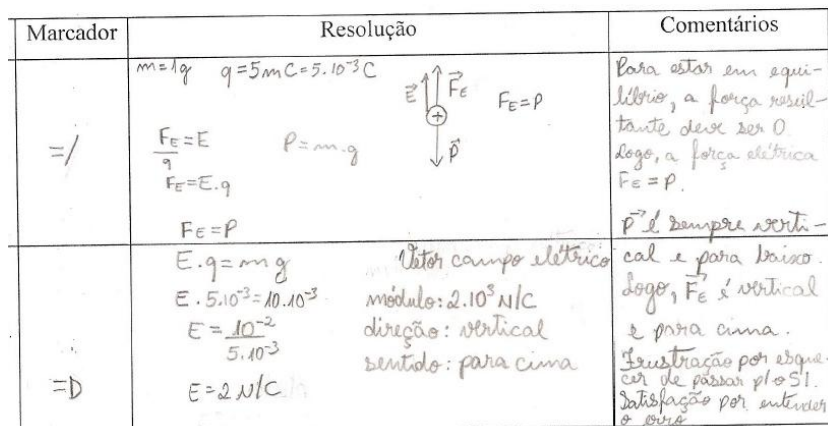 Marcador Resolução Comentários
m=1g q=5mC=5.10⁻³C
E⃗ F⃗E
+
P⃗
FE=P
=/
FE/q=E P=m.g
FE=E.q
FE=P
Para estar em equi-
líbrio, a força resul-
tante deve ser 0
Logo, a força elétrica
FE=P.
P⃗ é sempre verti-
=D
E.q=mg
E.5.10⁻³=10.10⁻³
E=10⁻²/5.10⁻³
E=2N/C
Vetor campo elétrico
módulo: 2.10³ N/C
direção: vertical
sentido: para cima
cal e para baixo.
Logo, F⃗E é vertical
e para cima.
Frustração por esque-
cer de passar p/ o SI.
Satisfação por entender
o erro